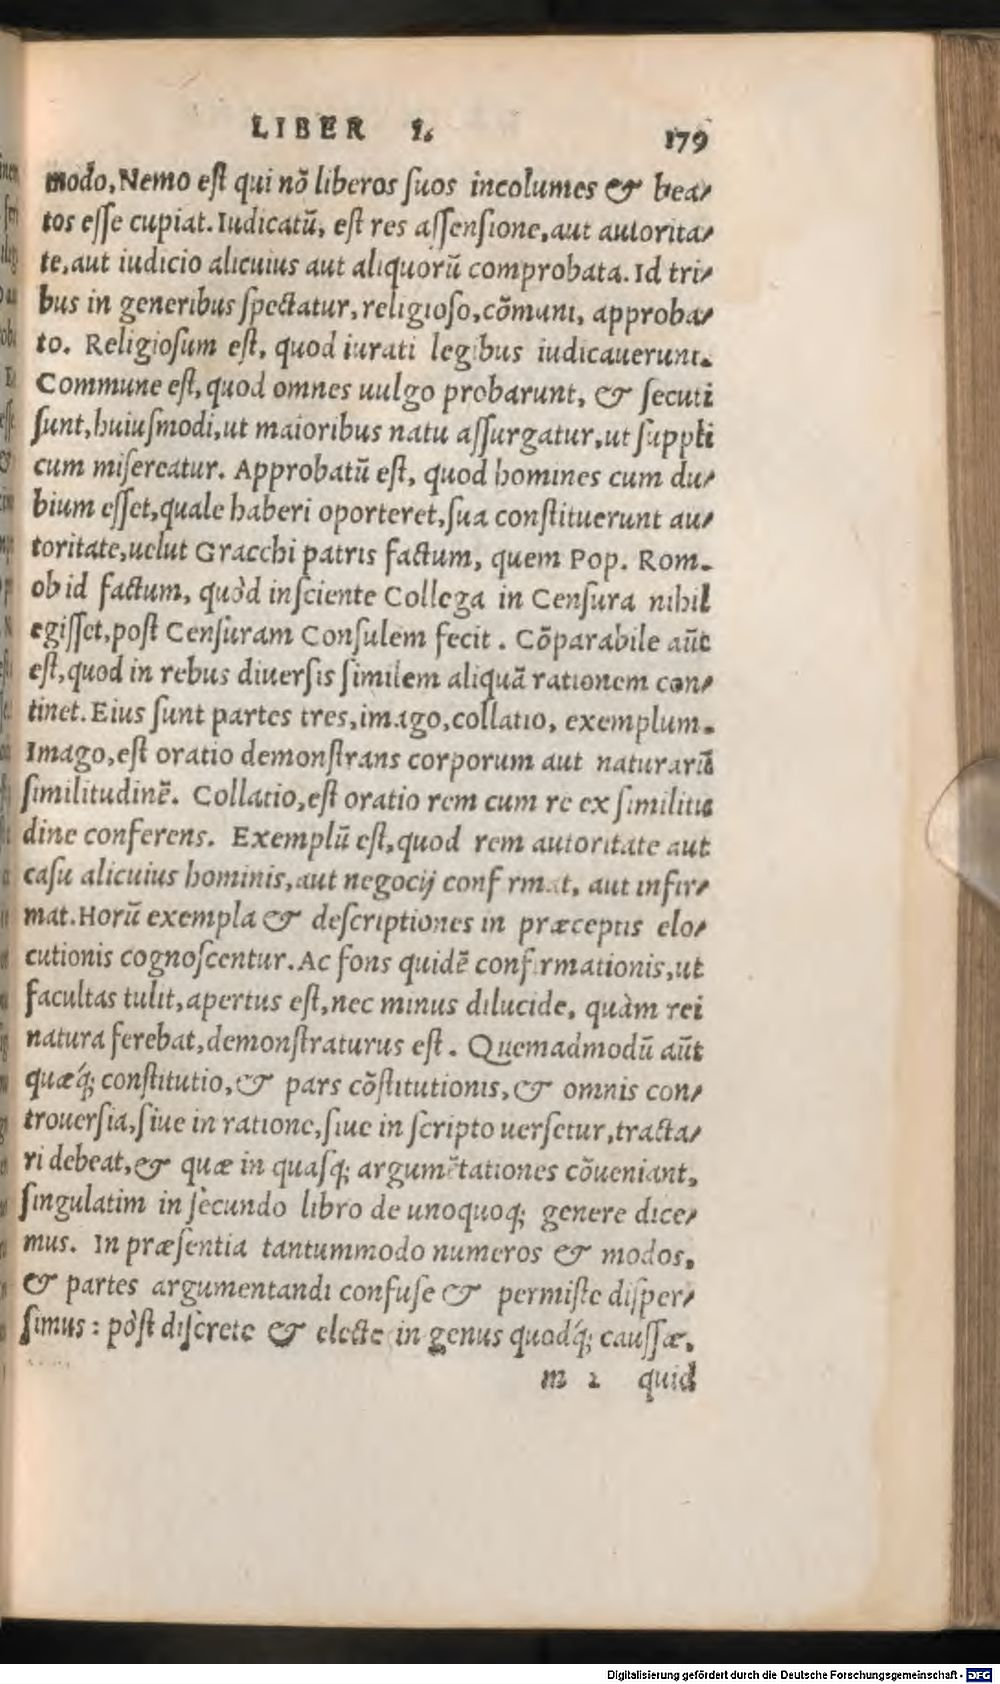 LIBER I. 179
modo, Nemo est qui nõ liberos suos incolumes & bea-
tos esse cupiat. Iudicatũ, est res assensione, aut autorita-
te, aut iudicio alicuius aut aliquorũ comprobata. Id tri-
bus in generibus spectatur, religioso, cõmuni, approba-
to. Religiosum est, quod iurati legibus iudicauerunt.
Commune est, quod omnes uulgo probarunt, & secuti
sunt, huiusmodi, ut maioribus natu assurgatur, ut suppli
cum misereatur. Approbatũ est, quod homines cum du-
bium esset, quale haberi oporteret, sua constituerunt au-
toritate, uelut Gracchi patris factum, quem Pop. Rom.
ob id factum, quòd insciente Collega in Censura nihil
egisset, post Censuram Consulem fecit. Cõparabile aũt
est, quod in rebus diuersis similem aliquã rationem con-
tinet. Eius sunt partes tres, imago, collatio, exemplum.
Imago, est oratio demonstrans corporum aut naturarũ
similitudinẽ. Collatio, est oratio rem cum re ex similitu
dine conferens. Exemplũ est, quod rem autoritate aut
casu alicuius hominis, aut negocij confirmat, aut infir-
mat. Horũ exempla & descriptiones in præceptis elo-
cutionis cognoscentur. Ac fons quidẽ confirmationis, ut
facultas tulit, apertus est, nec minus dilucide, quàm rei
natura ferebat, demonstraturus est. Quemadmodũ aũt
quæq́; constitutio, & pars cõstitutionis, & omnis con-
trouersia, siue in ratione, siue in scripto uersetur, tracta-
ri debeat, & quæ in quasq; argumẽtationes cõueniant,
singulatim in secundo libro de unoquoq; genere dice-
mus. In præsentia tantummodo numeros & modos,
& partes argumentandi confuse & permiste disper-
simus: pòst discrete & electe in genus quodq́; caussæ,
m 2 quid
Digitalisierung gefördert durch die Deutsche Forschungsgemeinschaft - DFG